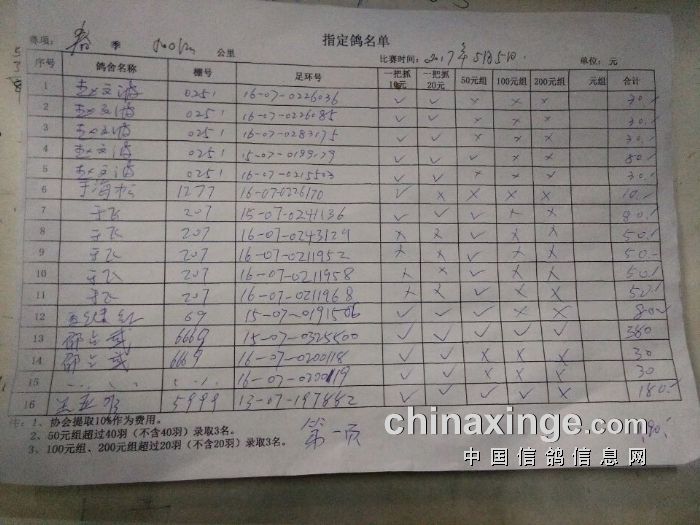 指定鸽名单
赛项: 春 季 公里 比赛时间: 2017年5月5日 单位: 元
序号 鸽舍名称 棚号 足环号 一把抓10元 一把抓20元 50元组 100元组 200元组 元组 合计
1 赵文涛 0251 16-07-0226036 ✓ ✓ × × × 30.
2 赵文涛 0251 16-07-0226085 ✓ ✓ × × × 30.
3 赵文涛 0251 16-07-0283175 ✓ ✓ × × × 30.
4 赵文涛 0251 15-07-0199179 ✓ ✓ ✓ × × 80.
5 赵文涛 0251 16-07-0215503 ✓ ✓ × × × 30.
6 于海松 1277 16-07-0226170 ✓ × × × × 10.
7 于飞 207 15-07-0241136 ✓ ✓ ✓ × × 80.
8 于飞 207 16-07-0243129 × × ✓ × × 50.
9 于飞 207 16-07-0211952 × × ✓ × × 50.
10 于飞 207 16-07-0211958 × × ✓ × × 50.
11 于飞 207 16-07-0211968 × × ✓ × × 50.
12 69 15-07-0191506 ✓ ✓ ✓ × × 80
13 6669 15-07-0325800 ✓ ✓ ✓ ✓ ✓ 380
14 6669 16-07-0200118 ✓ ✓ × × × 30
15 16-07-0200119 ✓ ✓ × × × 30
16 5999 13-07-197882 ✓ ✓ ✓ ✓ × 180.
注: 1、协会提取10%作为费用。
2、50元组超过40羽（不含40羽）录取3名。
3、100元组、200元组超过20羽（不含20羽）录取3名。
第一页
chinaxinge.com
中国信鸽信息网